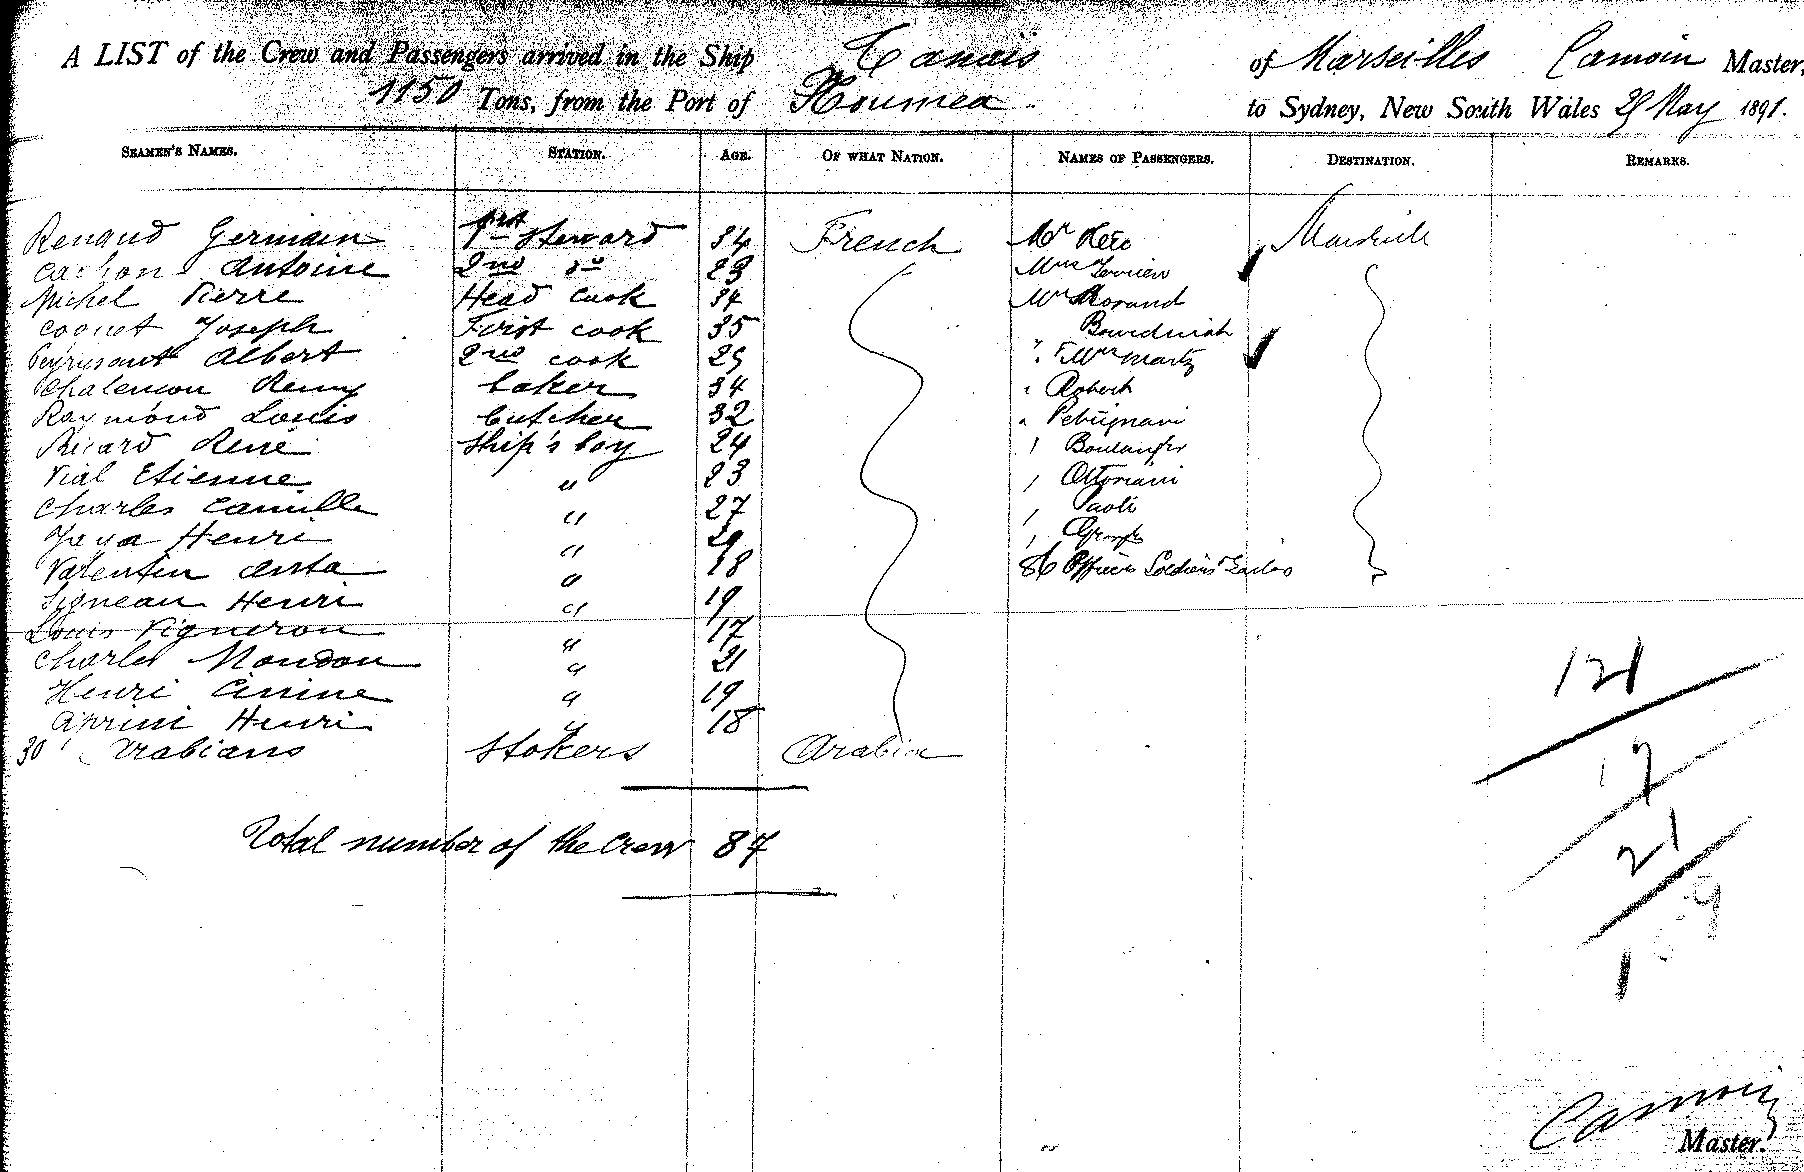 A LIST of the Crew and Passengers arrived in the Ship Tanais of Marseilles Camoin Master,
1150 Tons, from the Port of Noumea to Sydney, New South Wales 29 May 1891.
SEAMEN'S NAMES. STATION. AGE. OF WHAT NATION. NAMES OF PASSENGERS. DESTINATION. REMARKS.
Renaud Germain 1rst Steward 34 French Mr Marseille
Cachon Antoine 2nd do 23 Mrs
Michel Pierre Head cook 34 Mr Morand
Coquet Joseph First cook 35
Albert 2nd cook 25 " & Mrs Martz
Chalencon Remy baker 34 " Robert
Raymond Louis butcher 32 " Petrignani
Ricard René Ship's boy 24 " Boulanger
Vial Etienne " 23 " Ottoviani
Charles Camille " 27 " Paoli
Joya Henri " 29 "
Valentin " 18 86 Officers Soldiers
Henri " 19
Louis Vigneron " 17
Charles Moudon " 21
Henri " 19
Aprini Henri " 18
30 Arabians Stokers Arabia
Total number of the Crew 87
121
17
21
9
1
Camoin
Master.